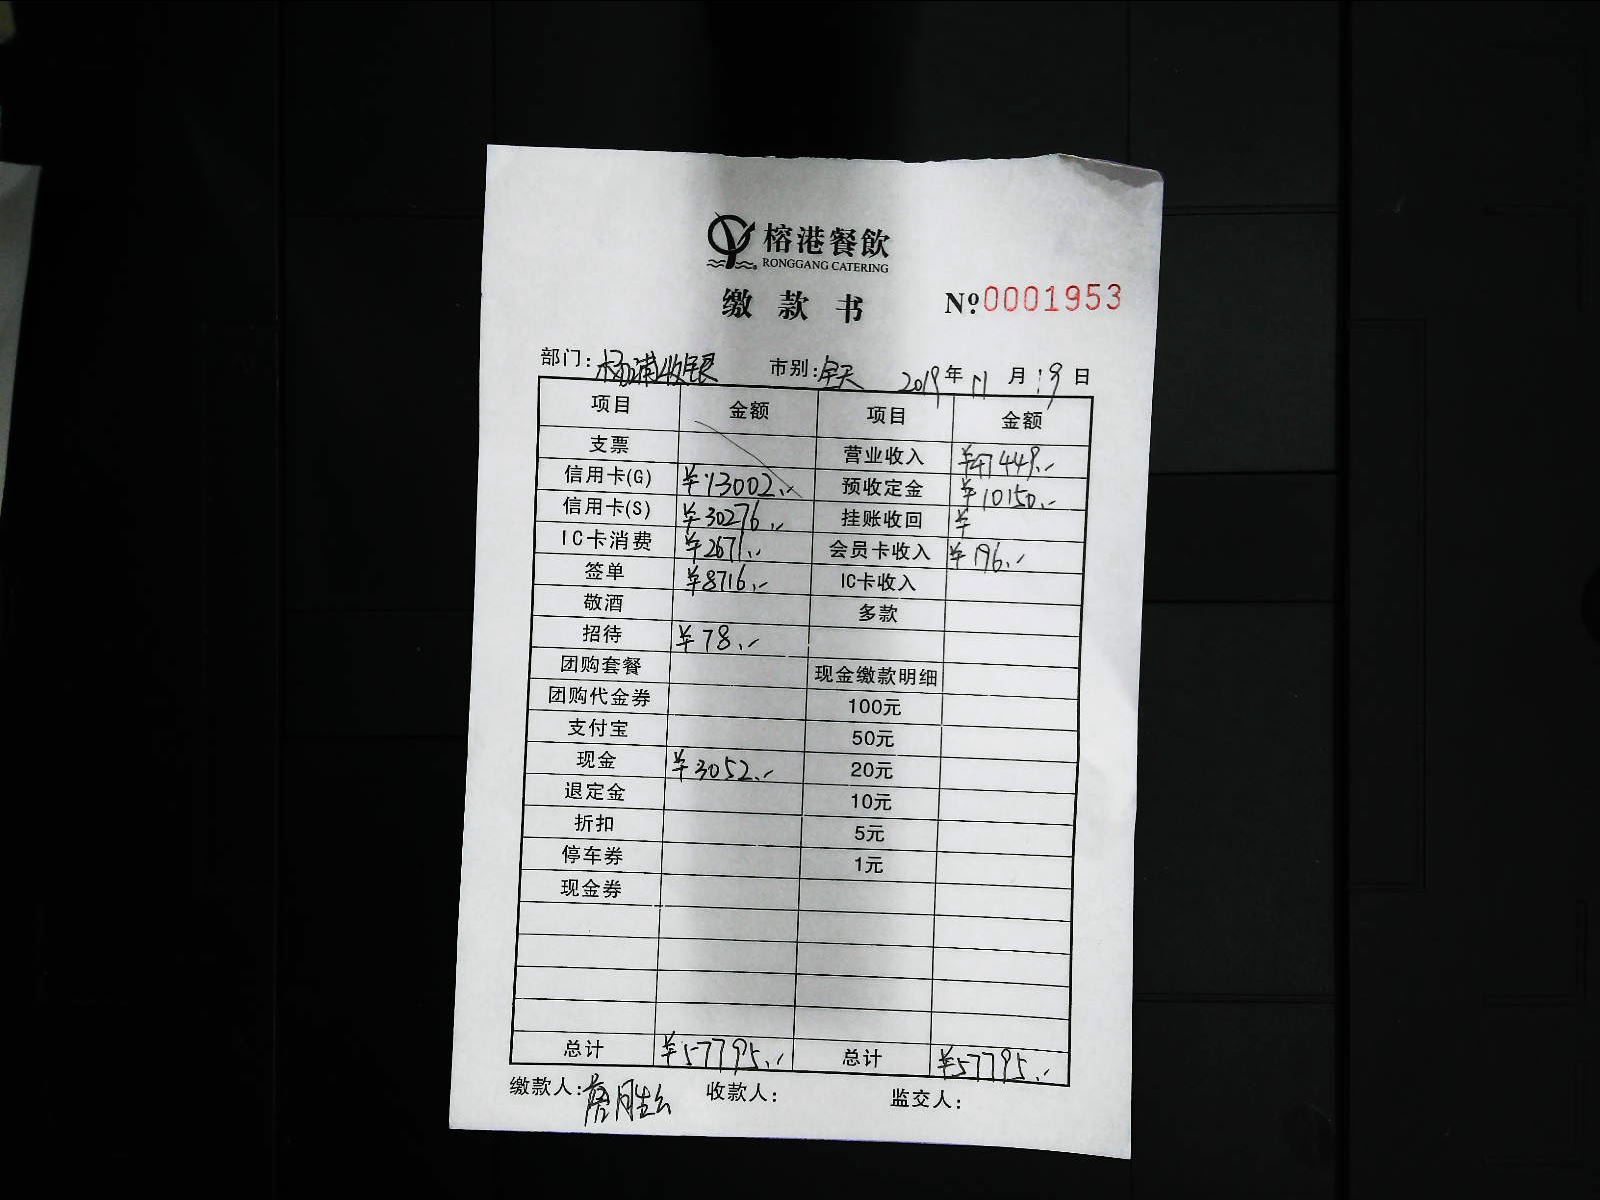 榕港餐飲
RONGGANG CATERING
缴款书 №0001953
部门: 杨浦收银 市别: 全天 2019年11月19日
项目 金额 项目 金额
支票 营业收入 ¥47449.-
信用卡(G) ¥13002.- 预收定金 ¥10150.-
信用卡(S) ¥30276.- 挂账收回 ¥
IC卡消费 ¥2671.- 会员卡收入 ¥196.-
签单 ¥8716.- IC卡收入
敬酒 多款
招待 ¥78.-
团购套餐 现金缴款明细
团购代金券 100元
支付宝 50元
现金 ¥3052.- 20元
退定金 10元
折扣 5元
停车券 1元
现金券
总计 ¥57795.- 总计 ¥57795.-
缴款人: 收款人: 监交人: